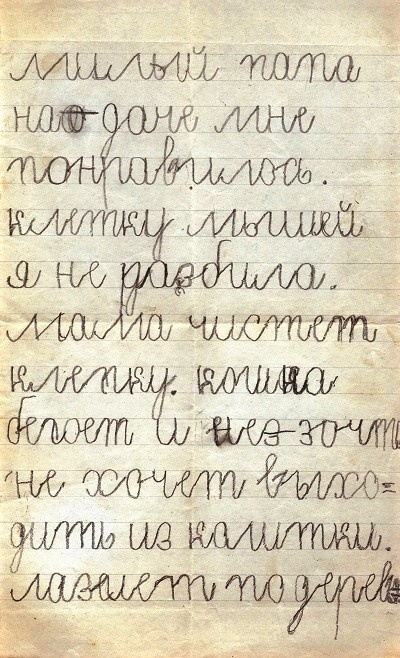 милый папа
на даче мне
понравилось.
клетку мышей
я не разбила.
мама чистет
клепку. кошка
бегоет и не зочт
не хочет выхо=
дить из калитки.
лазиет по дерев